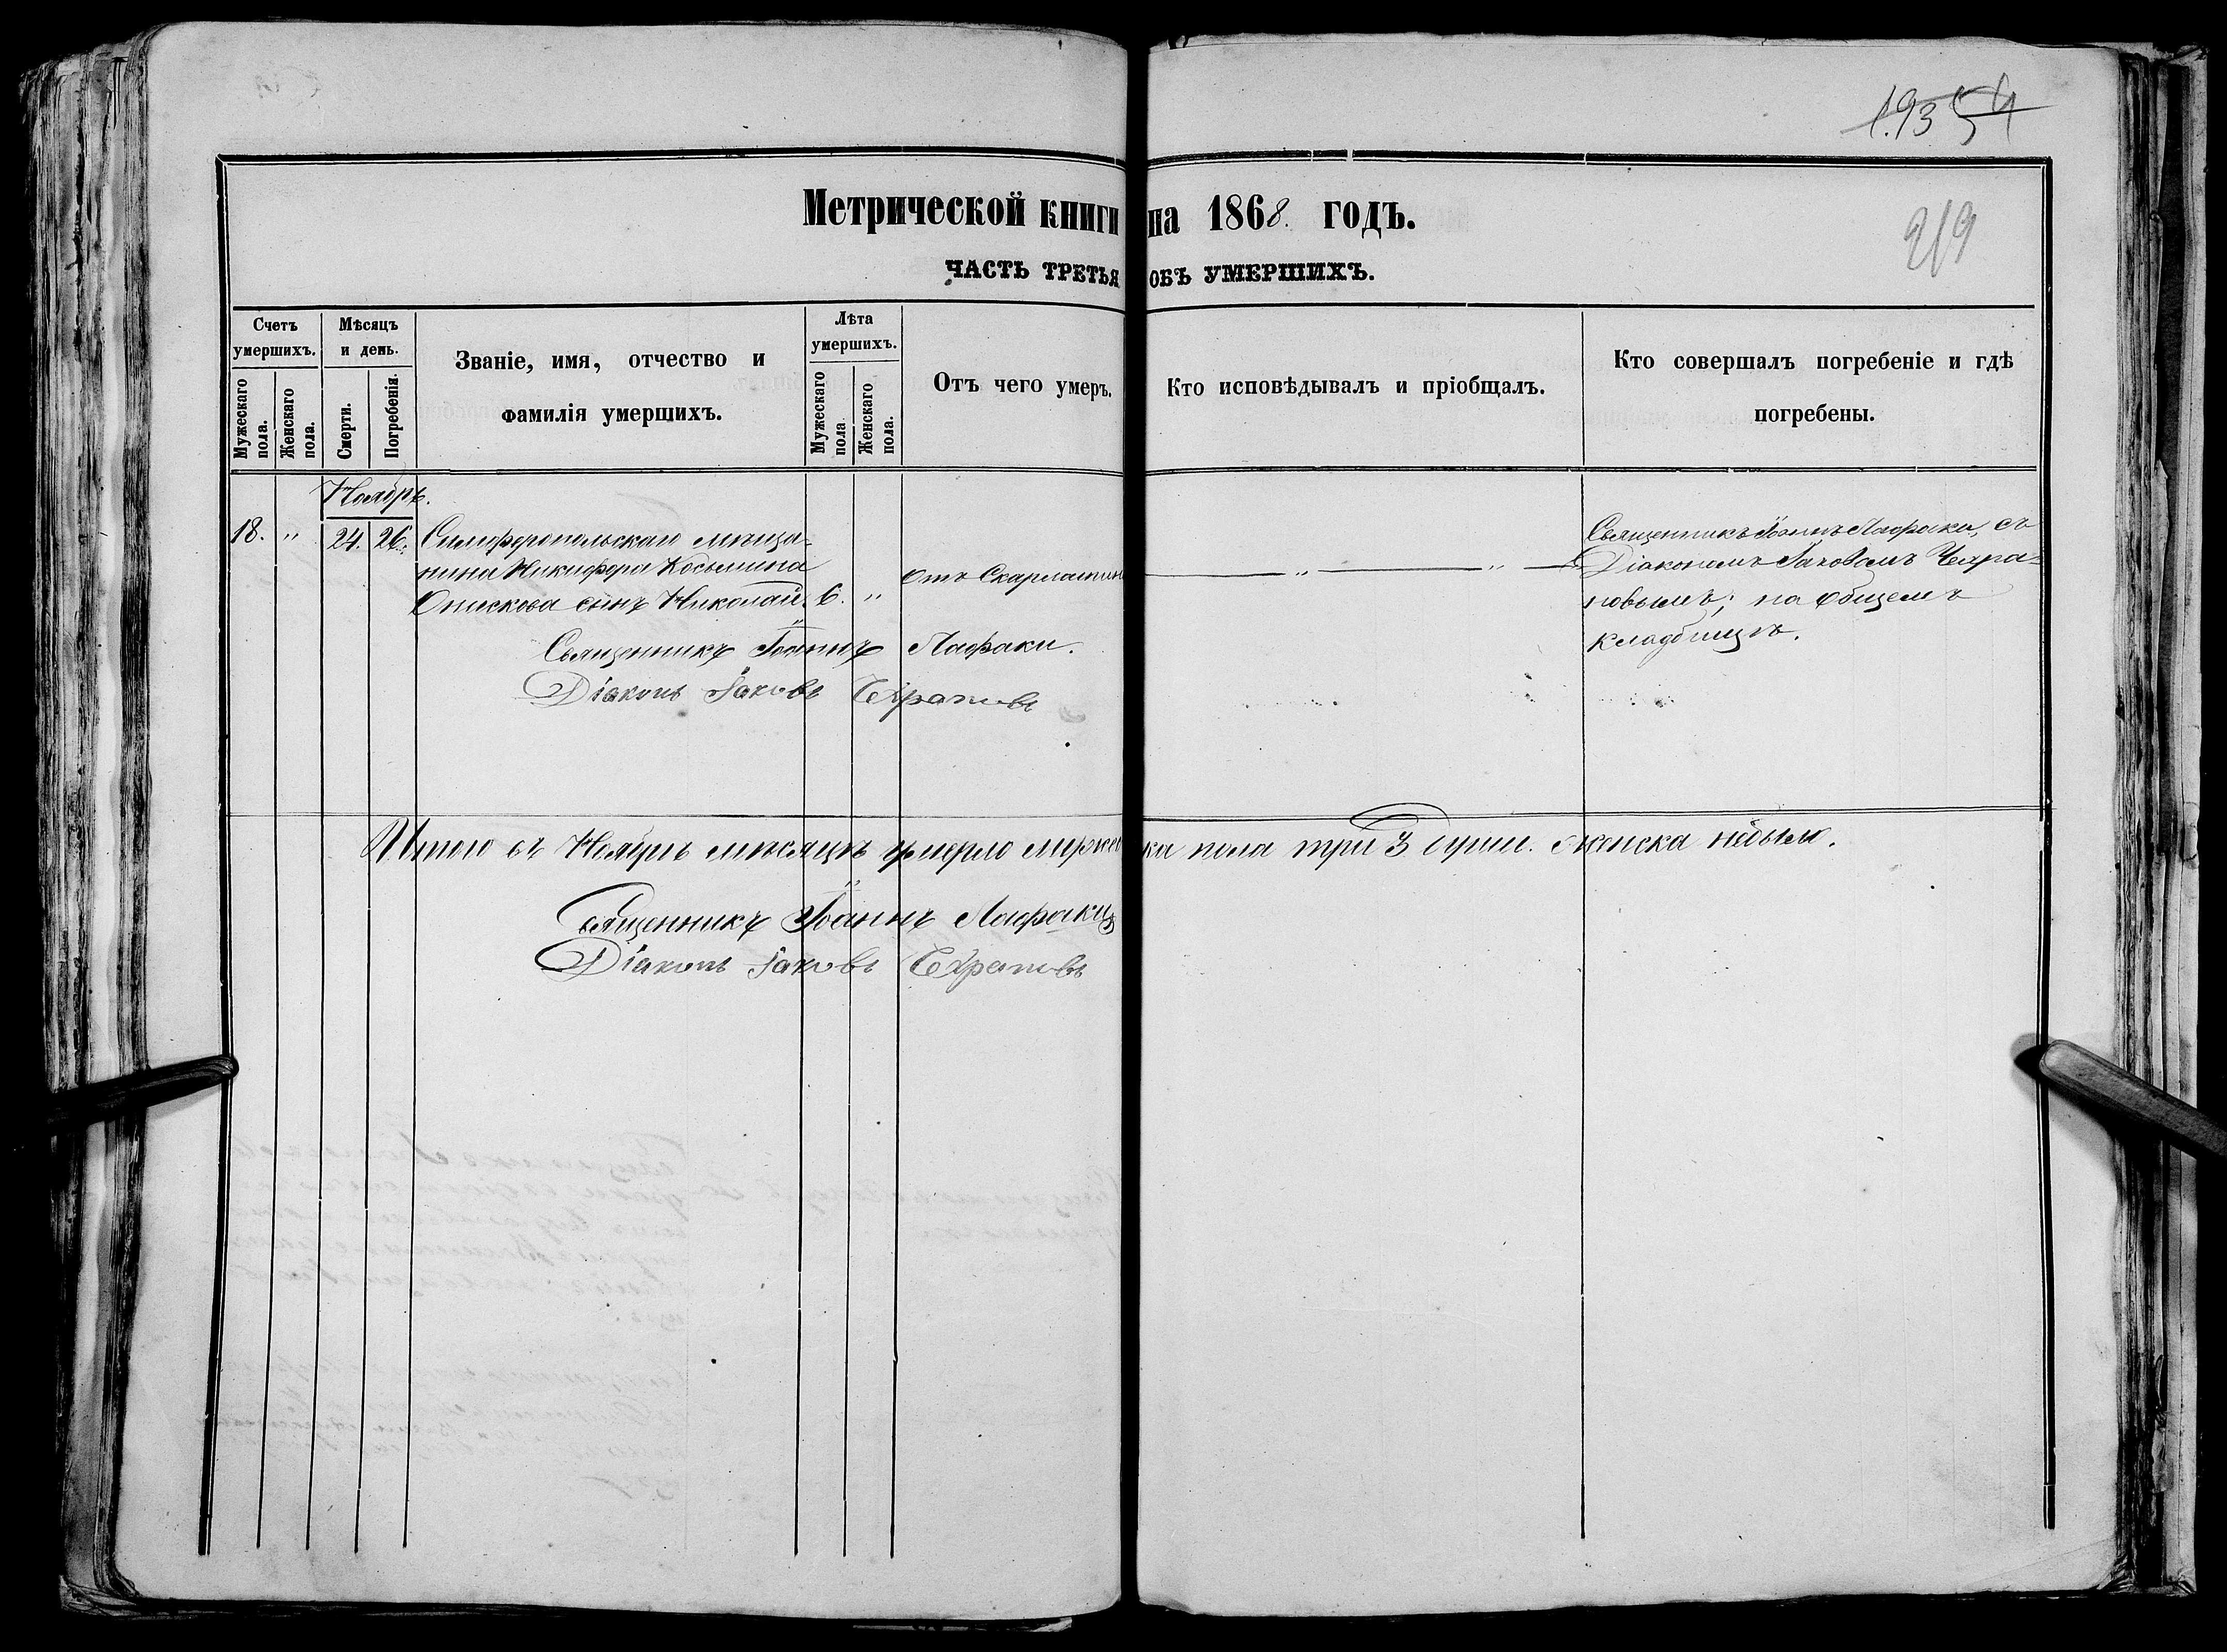 219
Метрической книги на 1868. годъ.
ЧАСТЬ ТРЕТЬЯ ОБЪ УМЕРШИХЪ.
Счетъ умершихъ.
Мужескаго пола.
Женскаго пола.
Мѣсяцъ и день.
Смерти.
Погребенія.
Званіе, имя, отчество и
фамилія умерщихъ.
Лѣта умершихъ.
Мужескаго пола
Женскаго пола.
Отъ чего умеръ.
Кто исповѣдывалъ и пріобщалъ.
Кто совершалъ погребеніе и гдѣ
погребены.
Ноябрь.
18. " 24. 26.
Симферопольскаго мѣща-
нина Никифора Косьмина
Онискова сынъ Николай. 6. "
отъ Скарлатин
Священникъ Іоаннъ Лафаки, съ
Діакономъ Іаковомъ Чехра-
новымъ; на общемъ
кладбищѣ.
Священникъ Іоаннъ Лафаки.
Діаконъ Іаковъ
Итого въ Ноябрѣ мѣсяцѣ умерло мужеска пола три 3 души. женска небыло.
Священникъ Іоаннъ Лафаки
Діаконъ Іаковъ